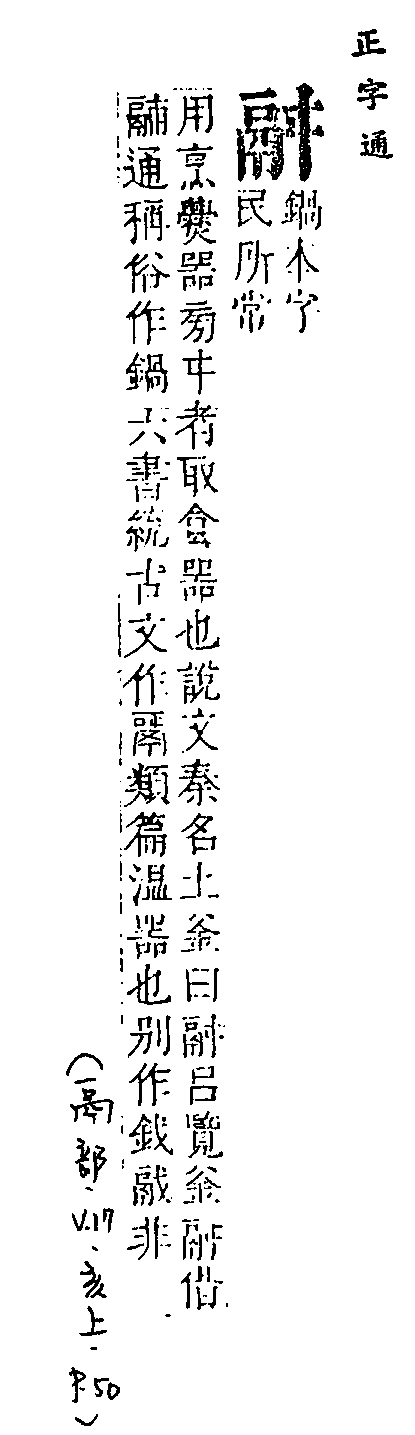 正字通
䰛
鍋本字
民所常
用烹爨器旁㐄者取食器也說文秦名土釜曰䰛呂覽釜䰛借
鬴通稱俗作鍋六書統古文作類篇溫器也别作非
(鬲部.V.17.亥上.P.50)